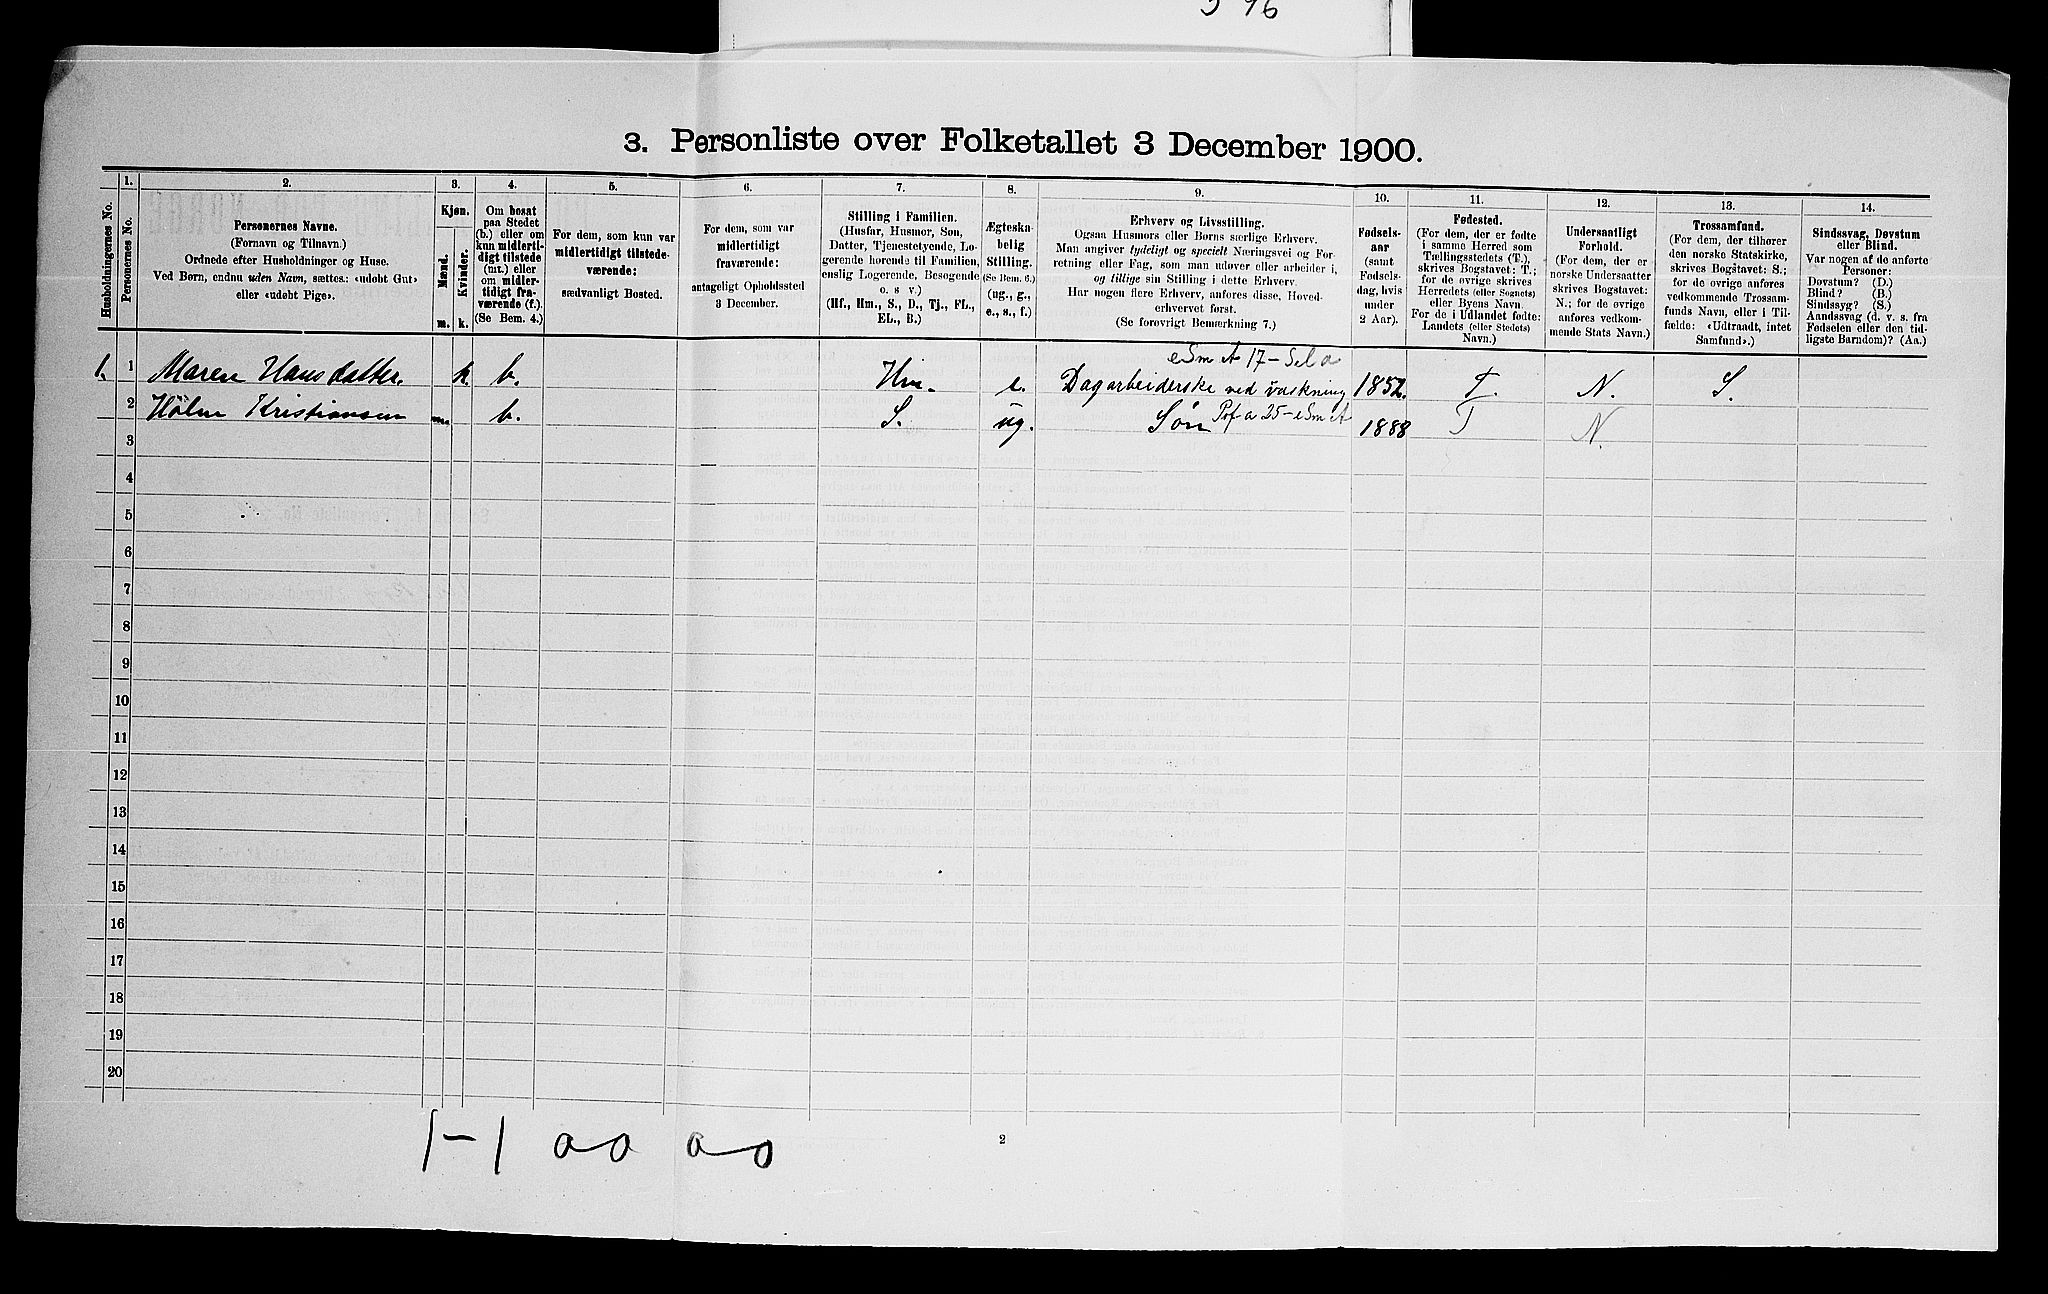 3. Personliste over Folketallet 3 December 1900.
Husholdningernes No.
1.
Personernes No.
2.
Personernes Navne.
(Fornavn og Tilnavn.)
Ordnede efter Husholdninger og Huse.
Ved Børn, endnu uden Navn, sættes: «udøbt Gut»
eller «udøbt Pige».
3.
Kjøn.
Mænd.
Kvinder.
m.
k.
4.
Om bosat
paa Stedet
(b.) eller om
kun midlerti-
digt tilstede
(mt.) eller
om midler-
tidigt fra-
værende (f.).
(Se Bem. 4.)
5.
For dem, som kun var
midlertidigt tilstede-
værende:
sædvanligt Bosted.
6.
For dem, som var
midlertidigt
fraværende:
antageligt Opholdssted
3 December.
7.
Stilling i Familien.
(Husfar, Husmor, Søn,
Datter, Tjenestetyende, Lo-
gerende hørende til Familien,
enslig Logerende, Besøgende
o. s v.)
(Hf., Hm., S., D., Tj., FL.,
EL., B.)
8.
Ægteska-
belig
Stilling.
(Se Bem. 6.)
(ug., g.,
e., s., f.)
9.
Erhverv og Livsstilling.
Ogsaa Husmors eller Børns særlige Erhverv.
Man angiver tydeligt og specielt Næringsvei og For-
retning eller Fag, som man udøver eller arbeider i,
og tillige sin Stilling i dette Erhverv.
Har nogen flere Erhverv, anføres disse, Hoved-
erhvervet først.
(Se forøvrigt Bemærkning 7.)
10.
Fødsels-
aar
(samt
Fødsels-
dag, hvis
under
2 Aar).
11.
Fødested.
(For dem, der er fødte
i samme Herred som
Tællingsstedets (T.),
skrives Bogstavet: T.;
for de øvrige skrives
Herredets (eller Sognets)
eller Byens Navn.
For de i Udlandet fødte:
Landets (eller Stedets)
Navn.)
12.
Undersaatligt
Forhold.
(For dem, der er
norske Undersaatter
skrives Bogstavet:
N.; for de øvrige
anføres vedkom-
mende Stats Navn.)
13.
Trossamfund.
(For dem, der tilhører
den norske Statskirke,
skrives Bogstavet: S.;
for de øvrige anføres
vedkommende Trossam-
funds Navn, eller i Til-
fælde: «Udtraadt, intet
Samfund».)
14.
Sindssvag, Døvstum
eller Blind.
Var nogen af de anførte
Personer:
Døvstum? (D.)
Blind? (B.)
Sindssyg? (S.)
Aandssvag (d. v. s. fra
Fødselen eller den tid-
ligste Barndom)? (Aa.)
1. 1 Maren Hansdatter. k. b. Hm. e. Dagarbeiderske ved vaskning 1852. T. N. S.
2 Kristiansen m. b. S. ug. Søn 1888 T N.
3
4
5
6
7
8
9
10
11
12
13
14
15
16
17
18
19
20
1-1 0-0 0-0
2